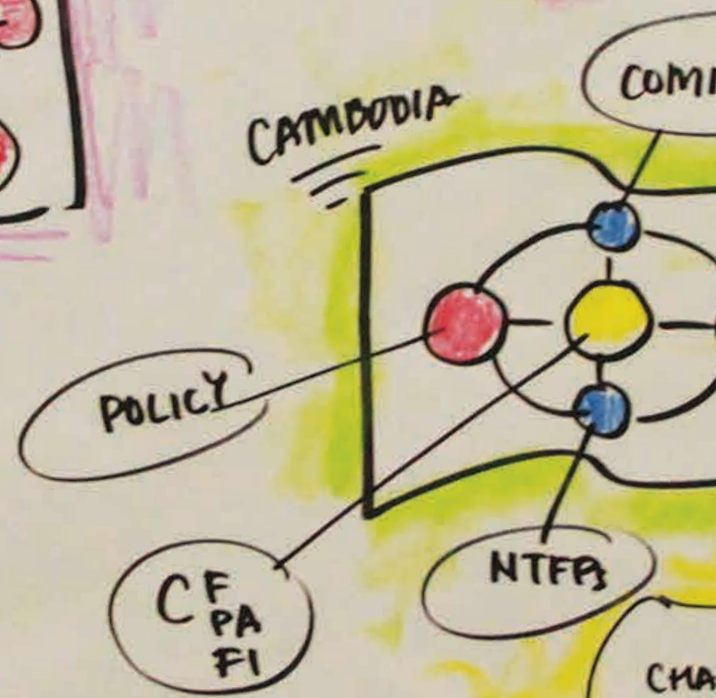 CAMBODIA
POLICY
CF
PA
FI
NTFPs